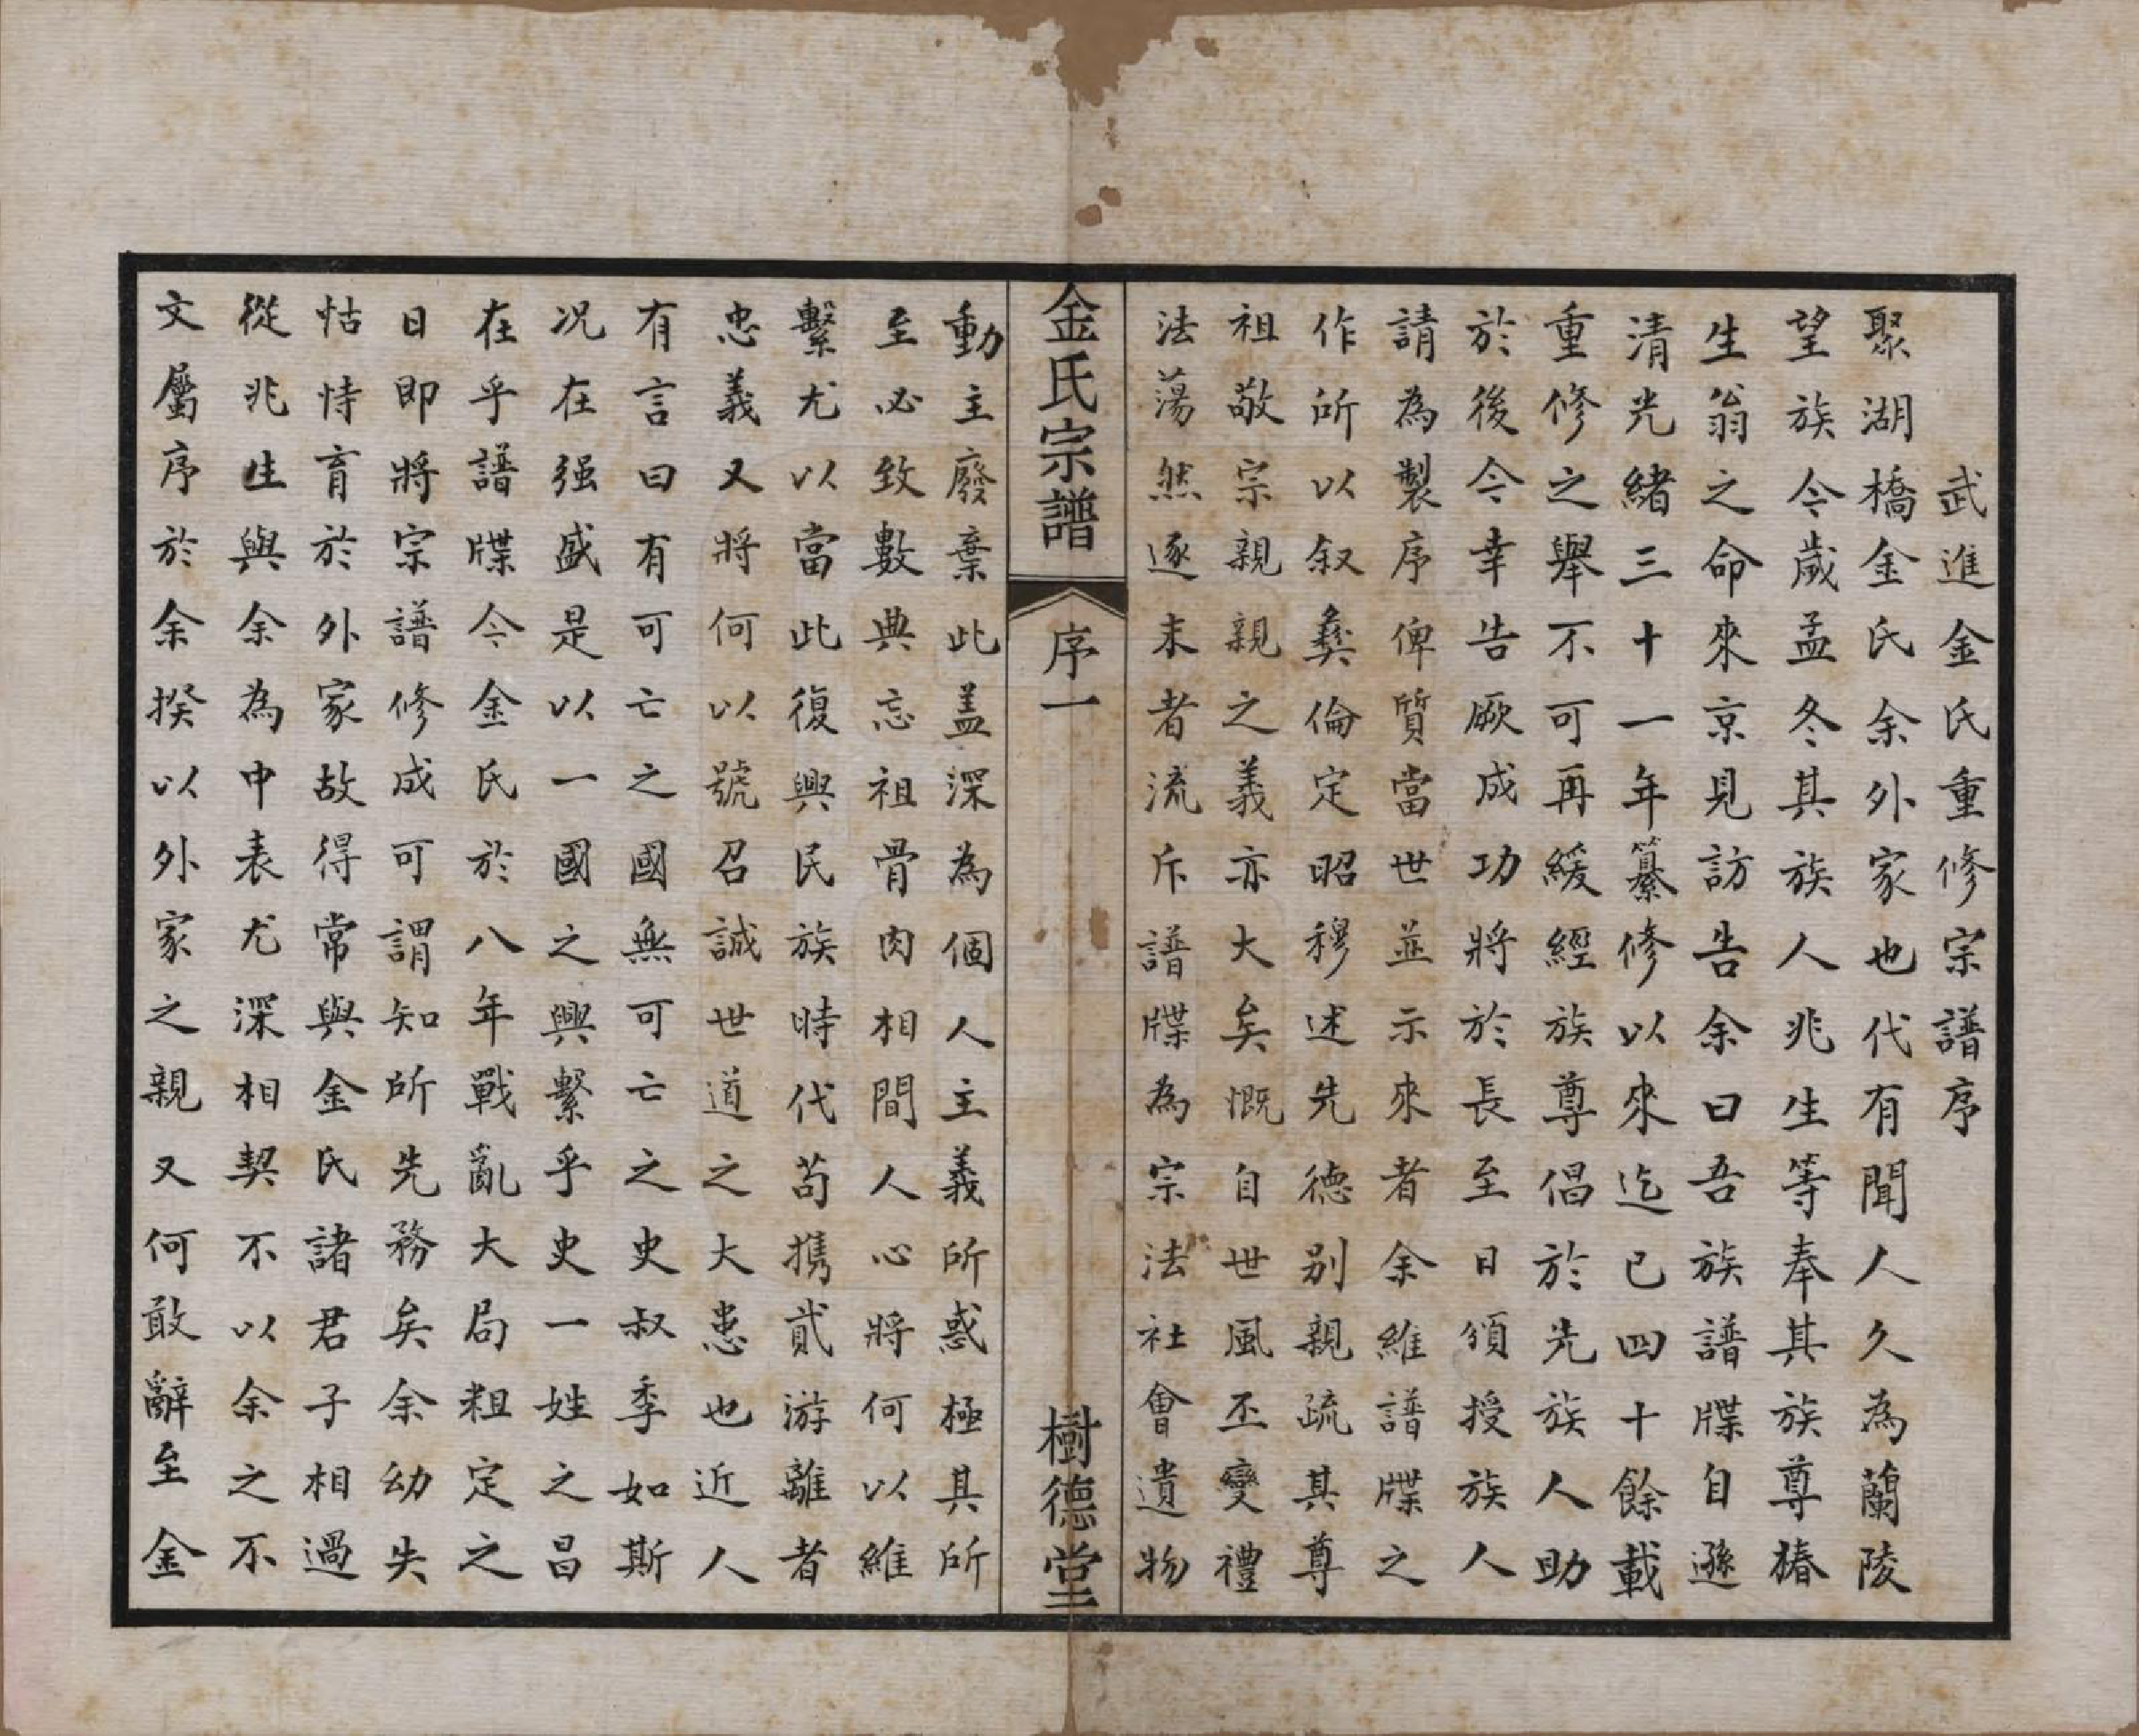 武進金氏重修宗譜序
聚湖橋金氏余外家也代有聞人久為蘭陵
望族今歲孟冬其族人兆生等奉其族尊椿
生翁之命來京見訪告余曰吾族譜牒自遜
清光緒三十一年纂修以來迄已四十餘載
重修之舉不可再緩經族尊倡於先族人助
於後今幸告厥成功將於長至日頒授族人
請為製序俾質當世並示來者余維譜牒之
作所以叙彝倫定昭穆述先德别親疏其尊
祖敬宗親親之義亦大矣慨自世風丕變禮
法蕩然逐末者流斥譜牒為宗法社會遺物
金氏宗譜
序一
樹德堂
動主廢棄此盖深為個人主義所惑極其所
至必致數典忘祖骨肉相間人心將何以維
繫尤以當此復興民族時代苟携貳游離者
忠義又將何以號召誠世道之大患也近人
有言曰有可亡之國無可亡之史叔季如斯
况在强盛是以一國之興繫乎史一姓之昌
在乎譜牒今金氏於八年戰亂大局粗定之
日即將宗譜修成可謂知所先務矣余幼失
怙恃育於外家故得常與金氏諸君子相過
從兆生與余為中表尤深相契不以余之不
文屬序於余揆以外家之親又何敢辭至金